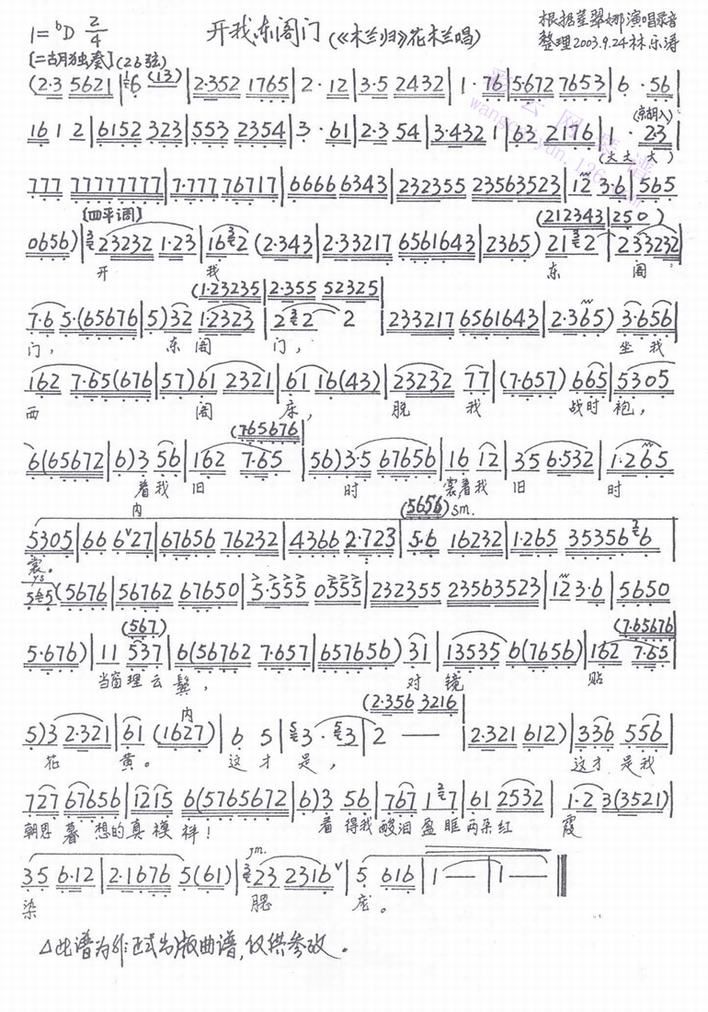 1=♭D 2/4 开我东阁门(《木兰归》花木兰唱) 根据董翠娜演唱录音
[二胡独奏](26弦) 整理2003.9.24林乐涛
(2·3 5621 | 6 (13) | 2·352 1765 | 2·12 | 3·5 2432 | 1·76 | 5672 7653 | 6·56 |
(京胡入)
161 2 | 6152 323 | 553 2354 | 3·61 | 2·3 54 | 3·432 | 63 2176 | ·23 |
(大大 大)
777 77777777 | 7·777 76717 | 6666 6343 | 232355 23563523 | 12 3·6 | 565
[四平调] (212343 | 250)
0656) | 23232 1·23 | 162 (2·343 | 2·33217 6561643 | 2365) 2132 | 233232
开 我 东 阁
(1·23235 | 2·355 52325
7·65·(65676 | 5)32 1·2323 | 2 2 2 | 233217 6561643 | 2·365) 3·656 |
门， 东阁 门， 坐我
162 7·65(676 | 57)61 2321 | 61 16(43) | 23232 77 | (7·657) 665 | 5305 |
西 阁 床， 脱 我 战时袍，
(765676
6(65672 | 6)3 56 | 162 7·65 | 56)3·5 67656 | 16 12 | 35 6·532 | 1·265 |
着我 旧 时 裳着我 旧 时
内 (5656) sm.
5305 | 66 6627 | 67656 76232 | 4366 2·723 | 5·6 16232 | 1·265 353566 |
裳。
55(5676 | 56762 67650 | 5·555 0555 | 232355 23563523 | 12 3·6 | 5650
(567) (7·65676
5·676) | 11 537 | 6(56762 7·657 | 657656) 31 | 13535 6(7656) | 162 7·65 |
当窗理云鬓， 对镜 贴
内 (2·356 3216
5)3 2·321 | 61 (1627) | 6 5 | 3·3 | 2 — | 2·321 612) | 336 556 |
花 黄。 这才是， 这才是我
727 67656 | 1215 6(5765672 | 6)3 56 | 767 127 | 61 2532 | 1·2 3(3521) |
朝思暮想的真模样！ 着得我酸泪盈眶两朵红 霞
35 6·12 | 2·1676 5(61) | 23 2316 | 5 616 | 1 — | 1 — ‖
染 腮 庞。
△此谱为非正式出版曲谱，仅供参改。